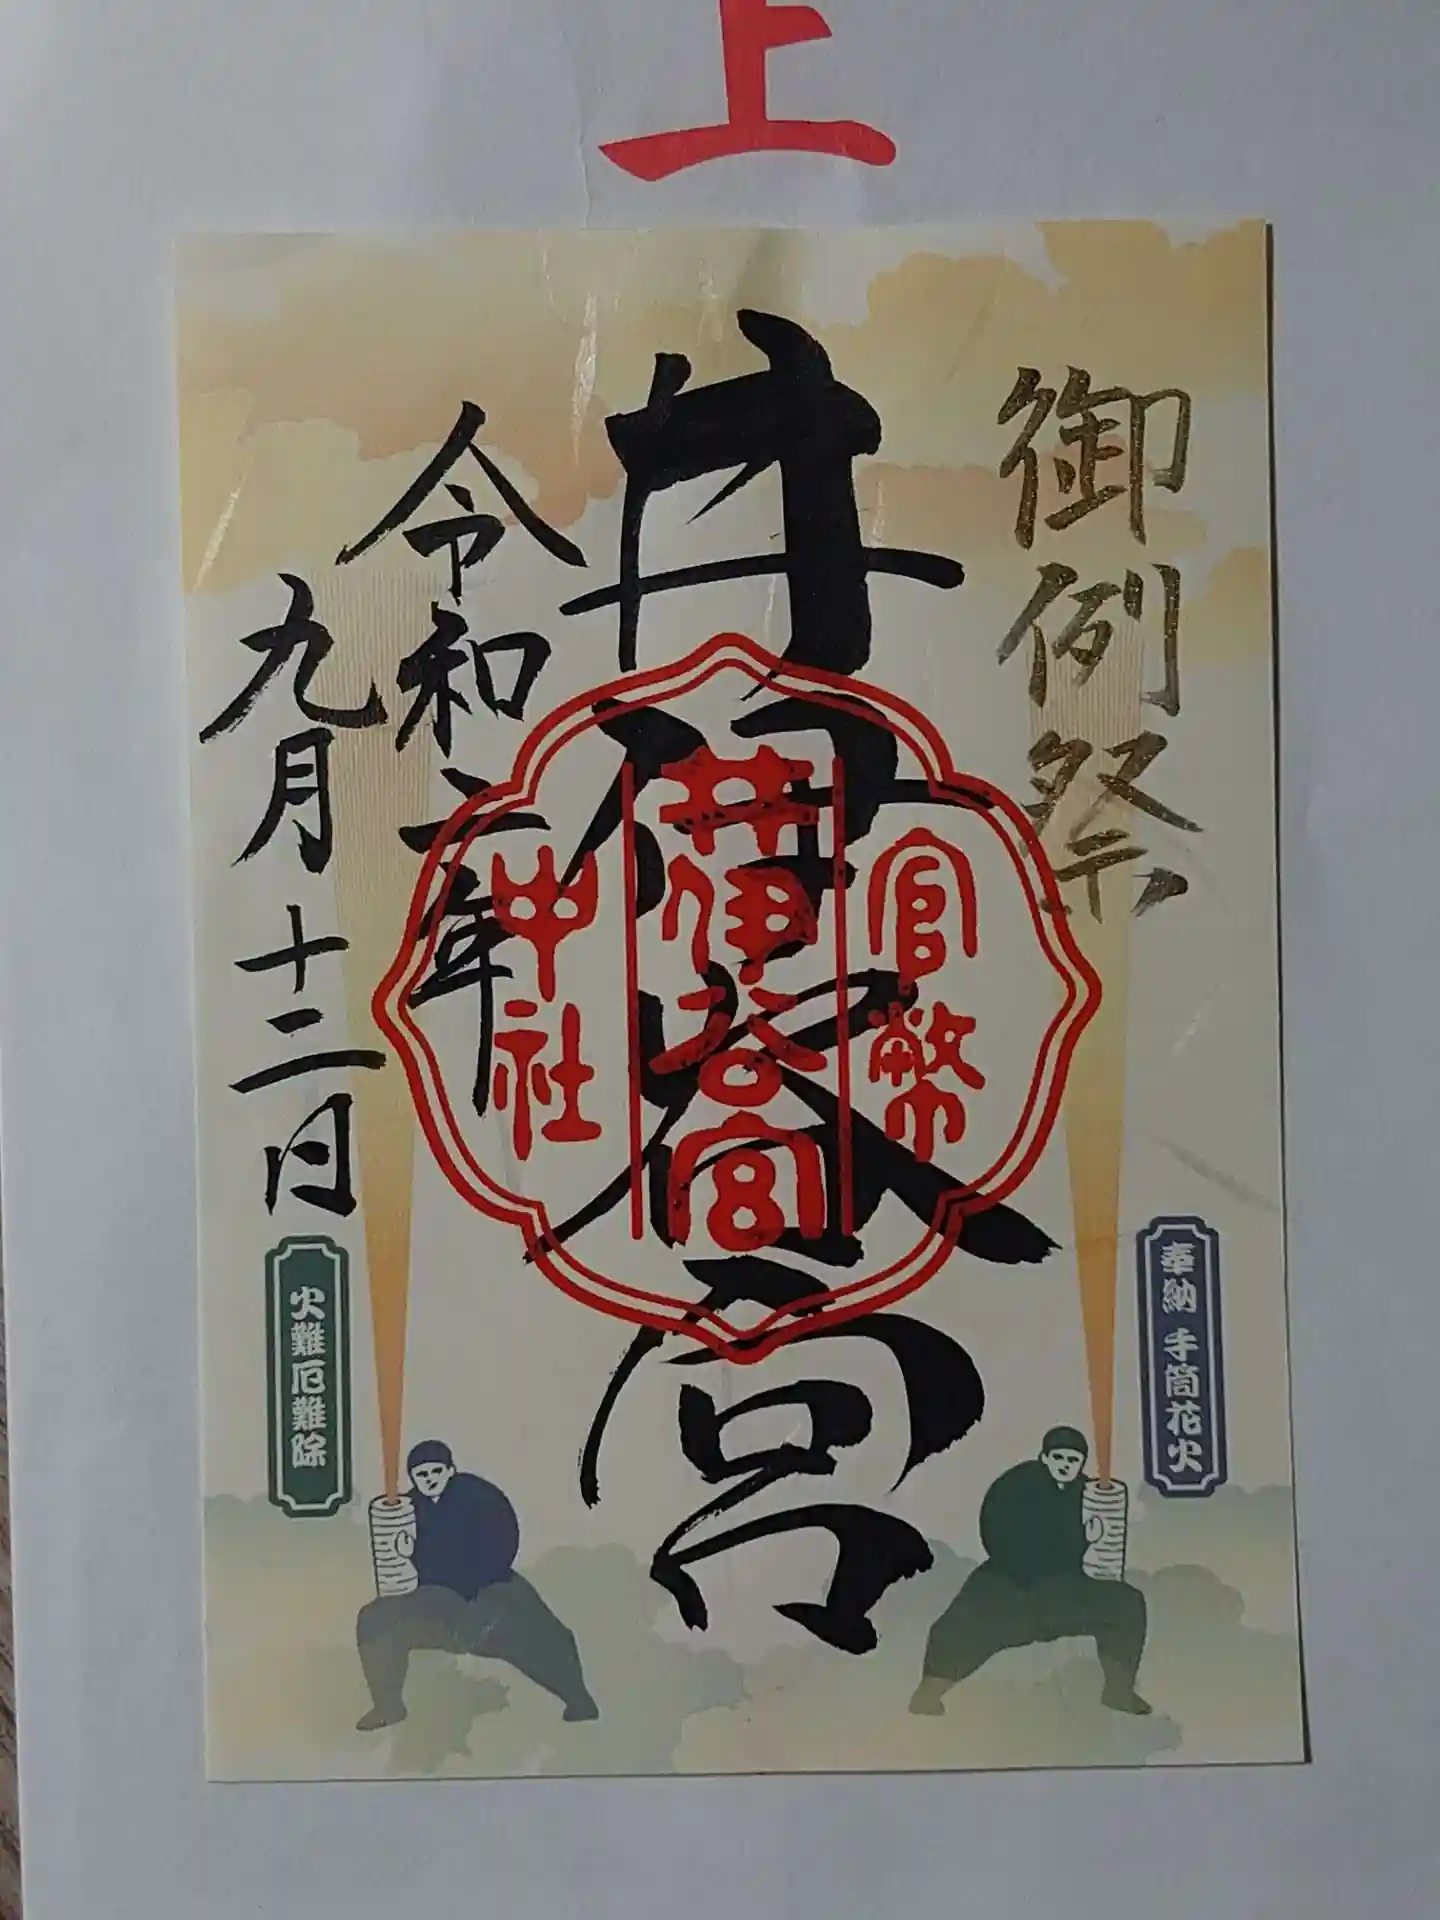 上
御例祭
井伊谷宮
令和六年
九月十二日
官幣
井伊谷宮
中社
奉納 手筒花火
火難厄難除